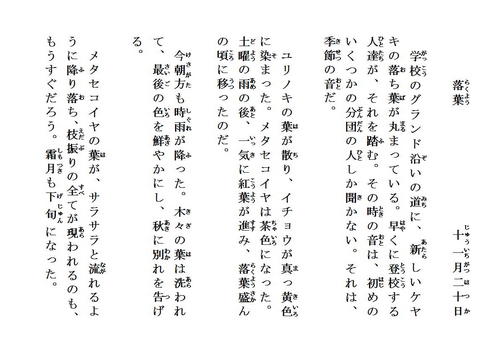 落葉　十一月二十日
学校のグランド沿いの道に、新しいケヤ
キの落ち葉が丸まっている。早くに登校する
人達が、それを踏む。その時の音は、初めの
いくつかの分団の人しか聞かない。それは、
季節の音だ。
ユリノキの葉が散り、イチョウが真っ黄色
に染まった。メタセコイヤは茶色になった。
土曜の雨の後、一気に紅葉が進み、落葉盛ん
の頃に移ったのだ。
今朝方も時雨が降った。木々の葉は洗われ
て、最後の色を鮮やかにし、秋に別れを告げ
る。
メタセコイヤの葉が、サラサラと流れるよ
うに降り落ち、枝振りの全てが現われるのも、
もうすぐだろう。霜月も下旬になった。